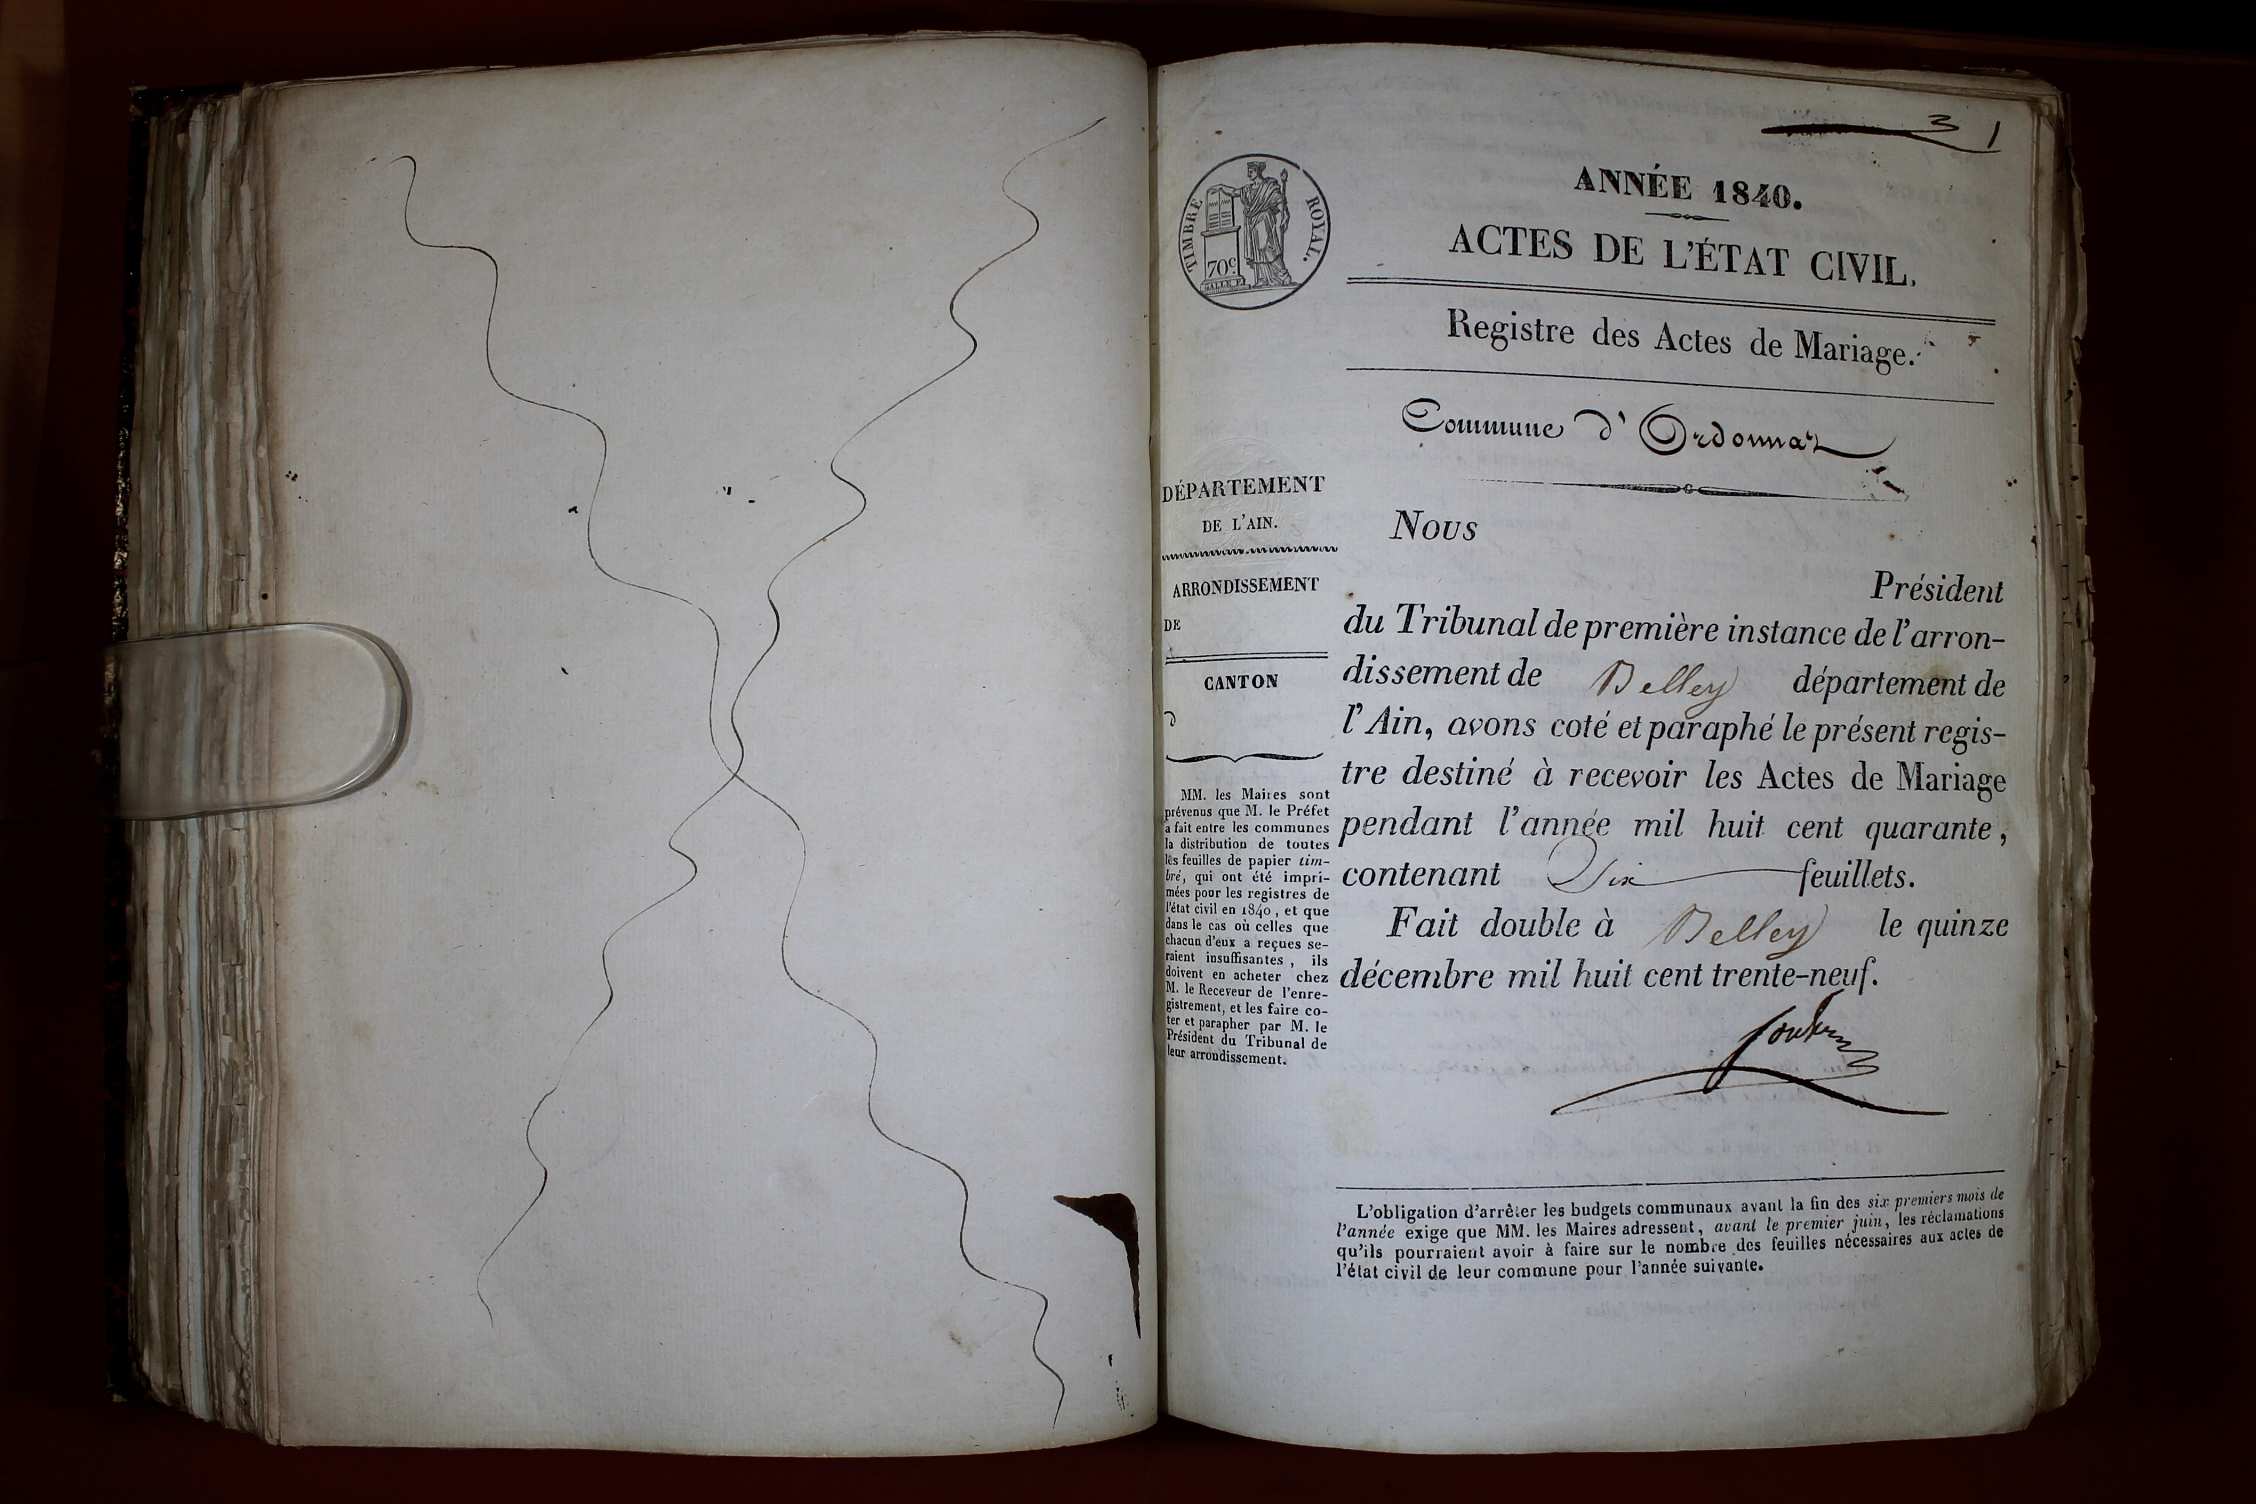 3 1
TIMBRE ROYAL.
70c
ANNÉE 1840.
ACTES DE L'ÉTAT CIVIL.
Registre des Actes de Mariage.
Commune d'Ordonnaz
DÉPARTEMENT
DE L'AIN.
ARRONDISSEMENT
DE
CANTON
d
MM. les Maires sont
prévenus que M. le Préfet
a fait entre les communes
la distribution de toutes
les feuilles de papier tim-
bré, qui ont été impri-
mées pour les registres de
l'état civil en 1840, et que
dans le cas où celles que
chacun d'eux a reçues se-
raient insuffisantes, ils
doivent en acheter chez
M. le Receveur de l'enre-
gistrement, et les faire co-
ter et parapher par M. le
Président du Tribunal de
leur arrondissement.
Nous
Président
du Tribunal de première instance de l'arron-
dissement de Belley département de
l'Ain, avons coté et paraphé le présent regis-
tre destiné à recevoir les Actes de Mariage
pendant l'année mil huit cent quarante,
contenant Six feuillets.
Fait double à Belley le quinze
décembre mil huit cent trente-neuf.
L'obligation d'arrêter les budgets communaux avant la fin des six premiers mois de
l'année exige que MM. les Maires adressent, avant le premier juin, les réclamations
qu'ils pourraient avoir à faire sur le nombre des feuilles nécessaires aux actes de
l'état civil de leur commune pour l'année suivante.